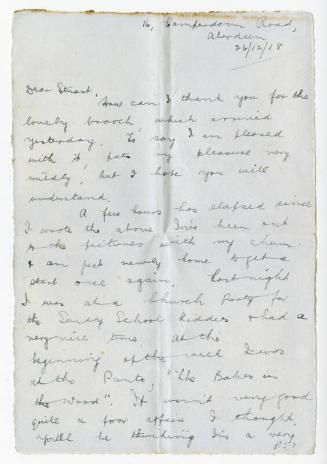 16, Camperdown Road,
Aberdeen
26/12/18
Dear Stuart,
How can I thank you for the
lovely brooch, which arrived
yesterday. To say I am pleased
with it, puts my pleasure very
mildly, but I hope you will
understand.
A few hours has elapsed since
I wrote the above. I've been out
to the pictures with my chum
& am just newly home to get a
start once again. Last night
I was at a Church Party for
the Sunday School kiddies & had a
very nice time. At the
beginning of the week I was
at the Panto, "The Babes in
the Wood". It wasn't very good
quite a poor affair I thought.
You'll be thinking I'm a very